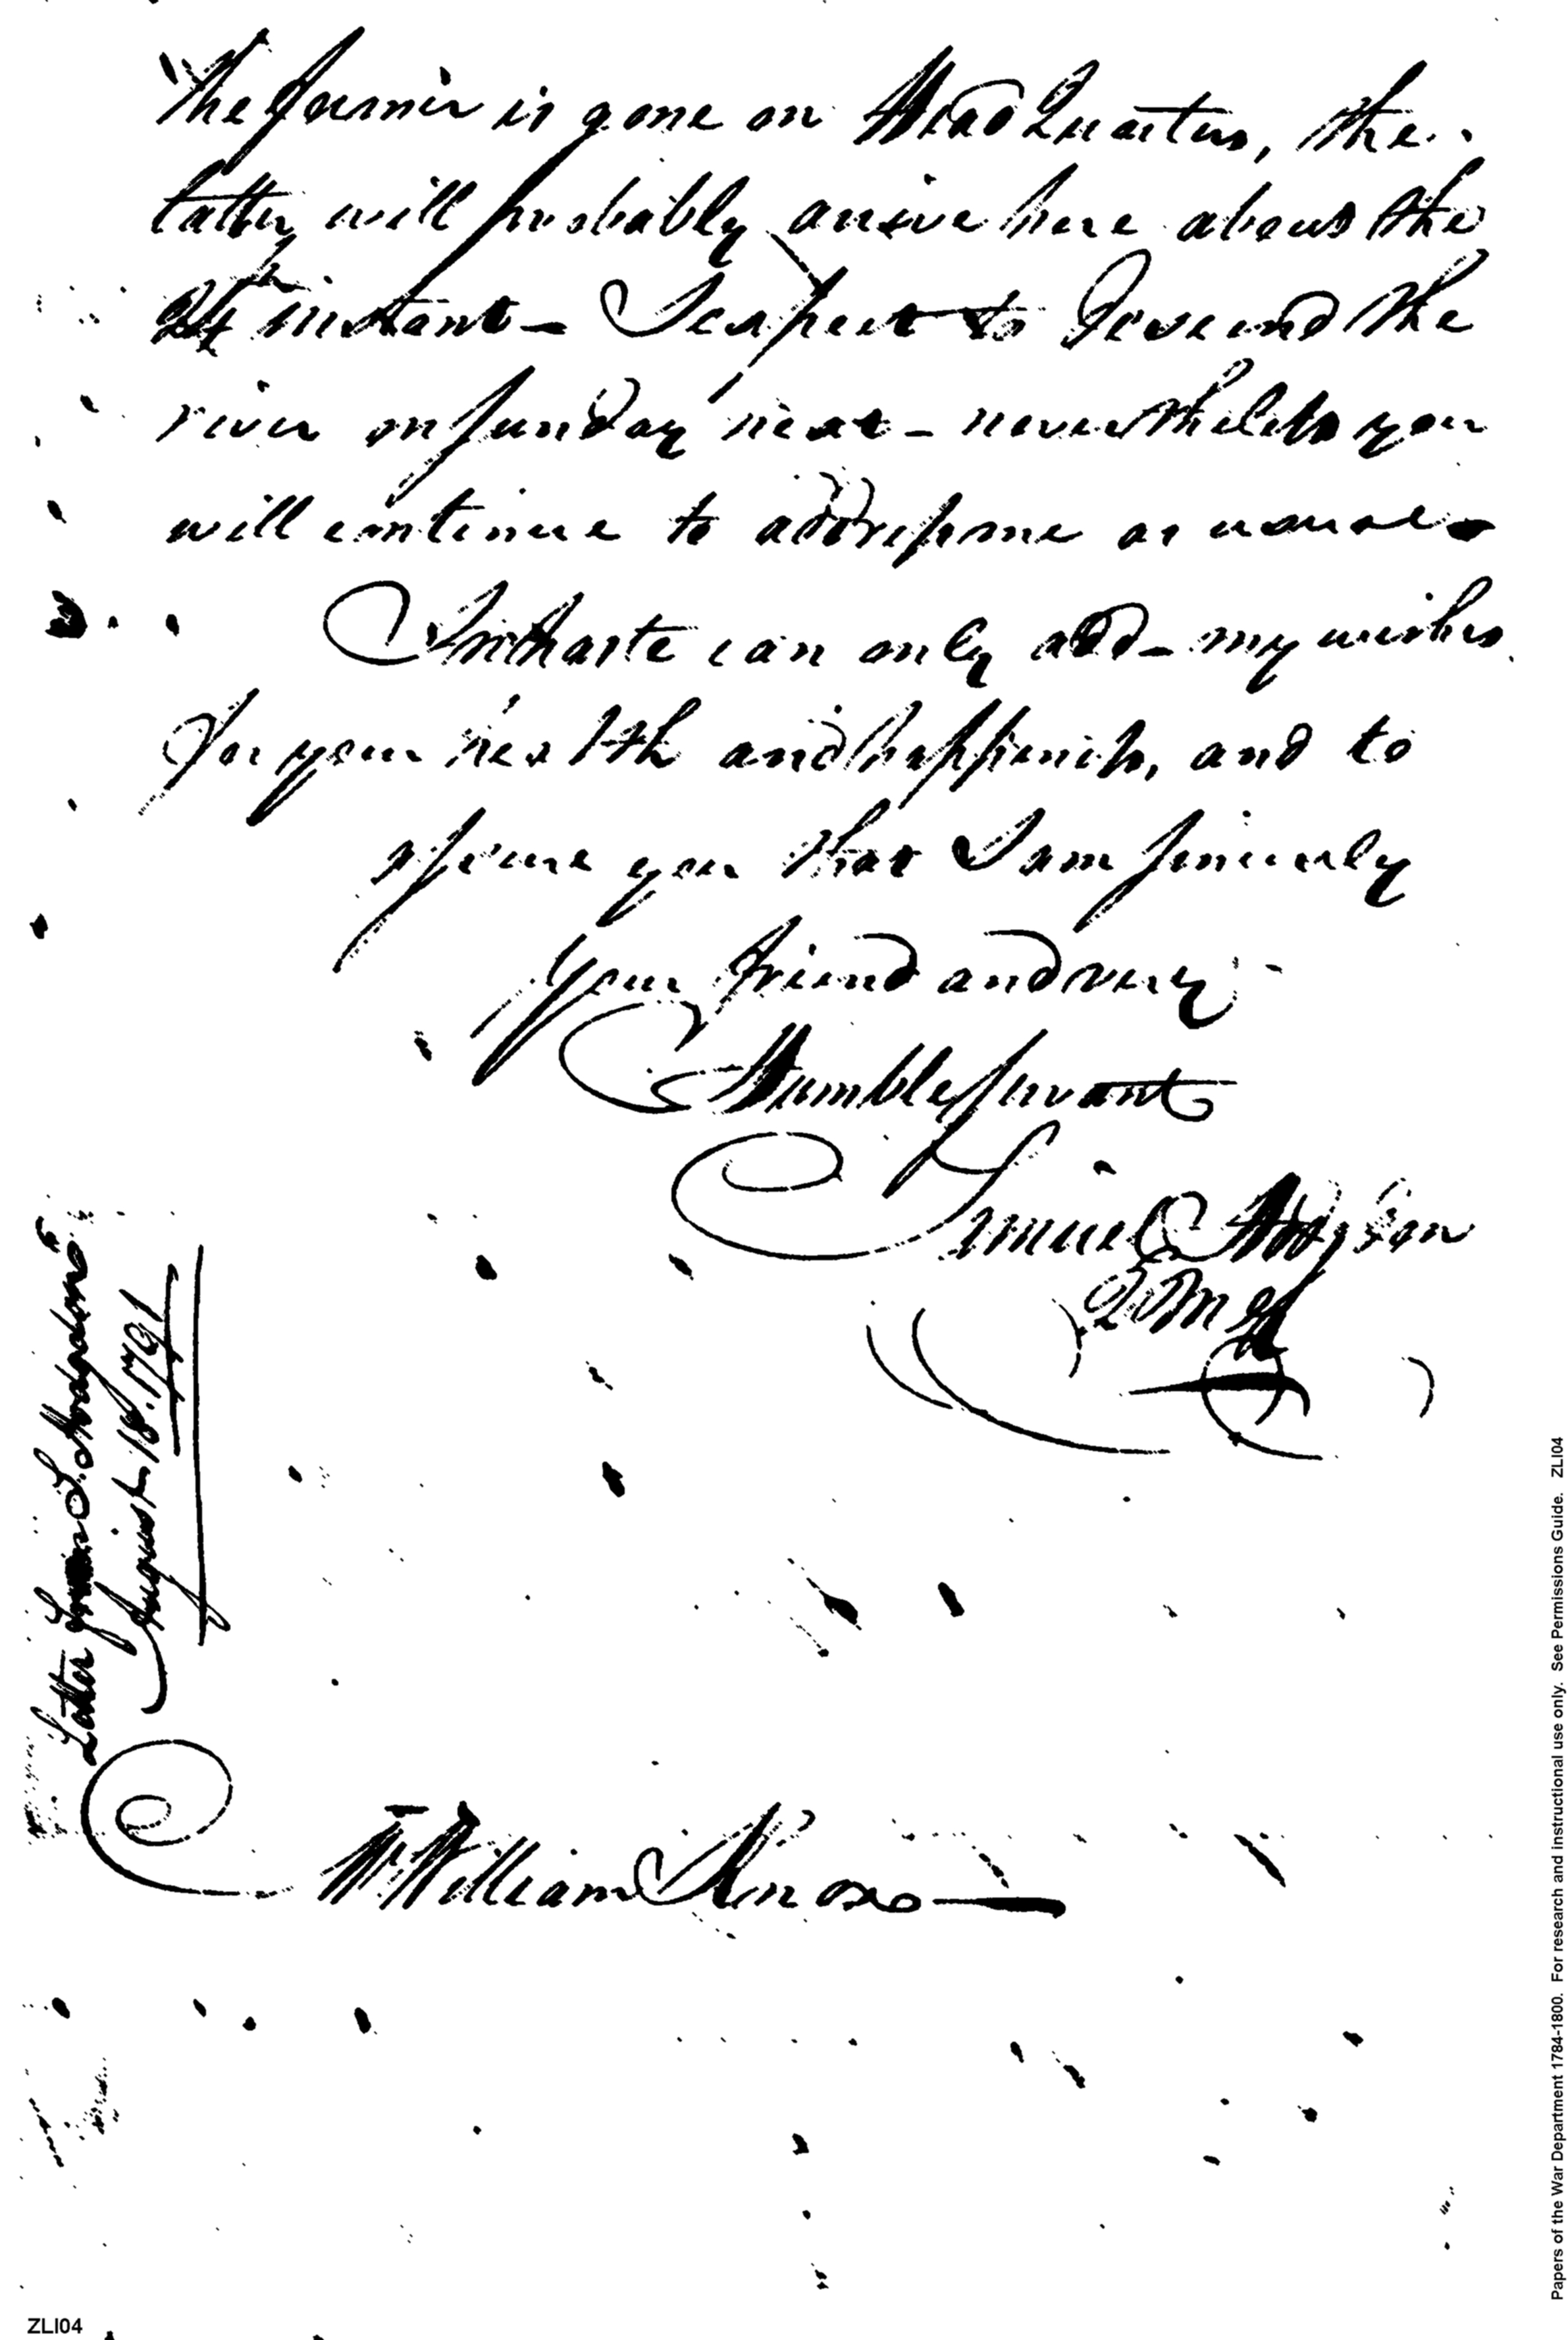 The former is gone on Head Quarters, the
latter will probably arrive here about the
instant – I expect to descend the
river on Sunday next – nevertheless you
will continue to address me as usual –
In haste can only add – my wishes
for your health and happiness, and to
assure you that I am sincerely
Your friend and very
Humble Servant
Samuel Hodgdon
QMG
Letter from S. Hodgdon
August 18. 1791
Mr William Knox
Papers of the War Department 1784-1800. For research and instructional use only. See Permissions Guide. ZLI04
ZLI04